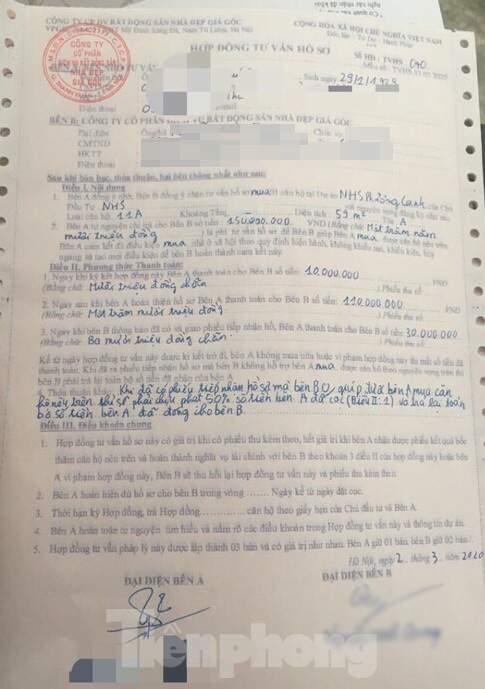 CÔNG TY CP DV BẤT ĐỘNG SẢN NHÀ ĐẸP GIÁ GỐC
CỘNG HÒA XÃ HỘI CHỦ NGHĨA VIỆT NAM
Nam Từ Liêm, Hà Nội
Độc lập - Tự Do - Hạnh Phúc
HỢP ĐỒNG TƯ VẤN HỒ SƠ
Số HĐ: TVHS 040
CÔNG TY
CỔ PHẦN
DỊCH VỤ BẤT ĐỘNG SẢN
NHÀ ĐẸP
GIÁ GỐC
BÊN A:
Sinh ngày 29/1/1929
Điện thoại
BÊN B: CÔNG TY CỔ PHẦN DỊCH VỤ BẤT ĐỘNG SẢN NHÀ ĐẸP GIÁ GỐC
Đại diện
CMTND
HKTT
Điện thoại
Sau khi bàn bạc, thỏa thuận, hai bên thống nhất như sau:
Điều I. Nội dung
1. Bên A đồng ý, Bên B đồng ý nhận tư vấn hồ sơ mua 01 căn hộ tại Dự án NHS Phương Canh của Chủ
Đầu Tư NHS
Loại căn hộ: 11A Khoảng Tầng Diện tích: 59 m²
2. Bên A tự nguyện chi trả cho Bên B số tiền: 150.000.000 VNĐ (Bằng chữ: Một trăm năm
mươi triệu đồng) là phí tư vấn hồ sơ để Bên B giúp Bên A mua được căn hộ nêu trên.
Bên A cam kết đủ điều kiện mua nhà ở xã hội theo quy định hiện hành, không khiếu nại, kiêu kiện, hủy
ngang và tạo mọi điều kiện để bên B hoàn thành cam kết này.
Điều II. Phương thức Thanh toán:
1. Ngay khi ký kết hợp đồng này Bên A thanh toán cho Bên B số tiền: 10.000.000 VNĐ
(Bằng chữ: Mười triệu đồng chẵn) Phiếu thu số
2. Ngay sau khi bên A hoàn thiện hồ sơ Bên A thanh toán cho Bên B số tiền: 110.000.000 VNĐ
(Bằng chữ: Một trăm mười triệu đồng) Phiếu thu số
3. Ngay khi bên B thông báo đã có và giao phiếu tiếp nhận hồ, Bên A thanh toán cho Bên B số tiền: 30.000.000
(Bằng chữ: Ba mươi triệu đồng chẵn.) Phiếu thu số
Kể từ ngày hợp đồng tư vấn này được kí kết trở đi, bên A không mua nữa hoặc vi phạm hợp đồng này thì mất số tiền đã
thanh toán. Khi đã ra phiếu tiếp nhận hồ sơ mà bên B không hỗ trợ bên A mua được căn hộ theo nguyện vọng trên thì
bên B phải trả lại toàn bộ số tiền đã nhận của bên A
4. Thỏa thuận khác: Khi đã có phiếu tiếp nhận hồ sơ mà bên B 0 giúp được bên A mua căn
hộ này trên, thì sẽ phải chịu phạt 50% số tiền bên A đã cọc (Điều II: 1) và trả lại toàn
bộ số tiền bên A đã đóng cho bên B.
Điều III. Điều khoản chung
1. Hợp đồng tư vấn hồ sơ này có giá trị khi có phiếu thu kèm theo, hết giá trị khi bên A nhận được phiếu kết quả bốc
thăm căn hộ nêu trên và hoàn thành nghĩa vụ tài chính với bên B theo khoản 3 điều II của hợp đồng này hoặc bên
A vi phạm hợp đồng này, Bên B sẽ thu hồi lại hợp đồng tư vấn này và phiếu thu kèm theo.
2. Bên A hoàn thiện đủ hồ sơ cho bên B trong vòng ........ Ngày kể từ ngày đặt cọc.
3. Thời hạn ký Hợp đồng, trả Hợp đồng............ căn hộ theo giấy hẹn của Chủ đầu tư và Bên A.
4. Bên A hoàn toàn tự nguyện tìm hiểu và nắm rõ các điều khoản trong Hợp đồng tư vấn này và thông tin dự án.
5. Hợp đồng tư vấn pháp lý này được lập thành 03 bản và có giá trị như nhau. Bên A giữ 01 bản, bên B giữ 02 bản.
Hà Nội, ngày 2 tháng 3 năm 2020
ĐẠI DIỆN BÊN A
ĐẠI DIỆN BÊN B
Tiềnphong